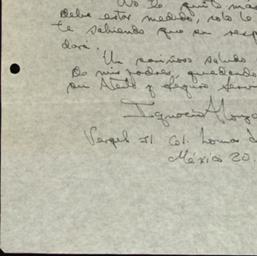 No le quito más
debe estar medido, solo le
te sabiendo que en resp
dará.
Un cariñoso saludo
de mis padres, quedando
su Atento y seguro serv
Ignacio
Vergel 31 Col. Lomas d
México 20